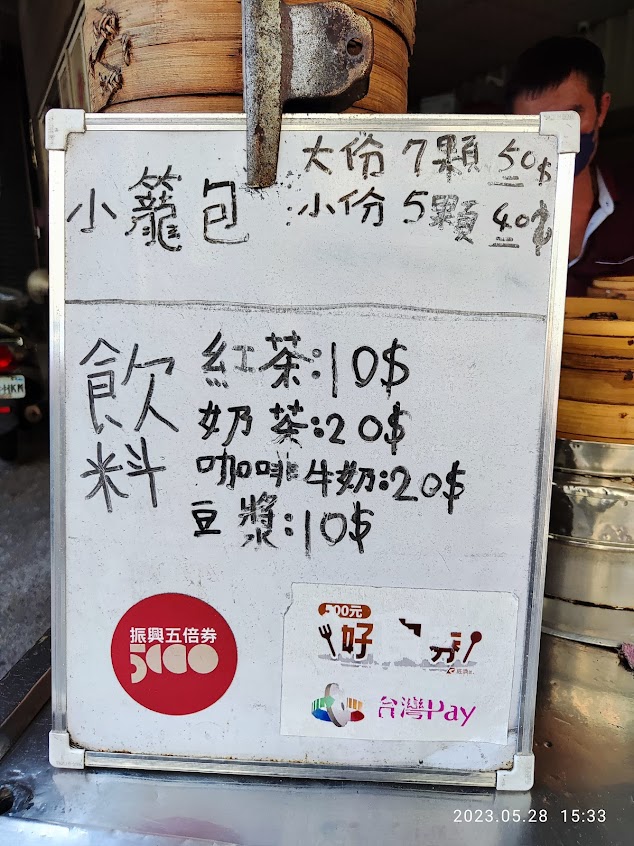 大份 7顆 50$
小籠包 : 小份 5顆 40$
飲料
紅茶:10$
奶茶:20$
咖啡牛奶:20$
豆漿:10$
振興五倍券
5000
500元
好
台灣Pay
2023.05.28 15:33